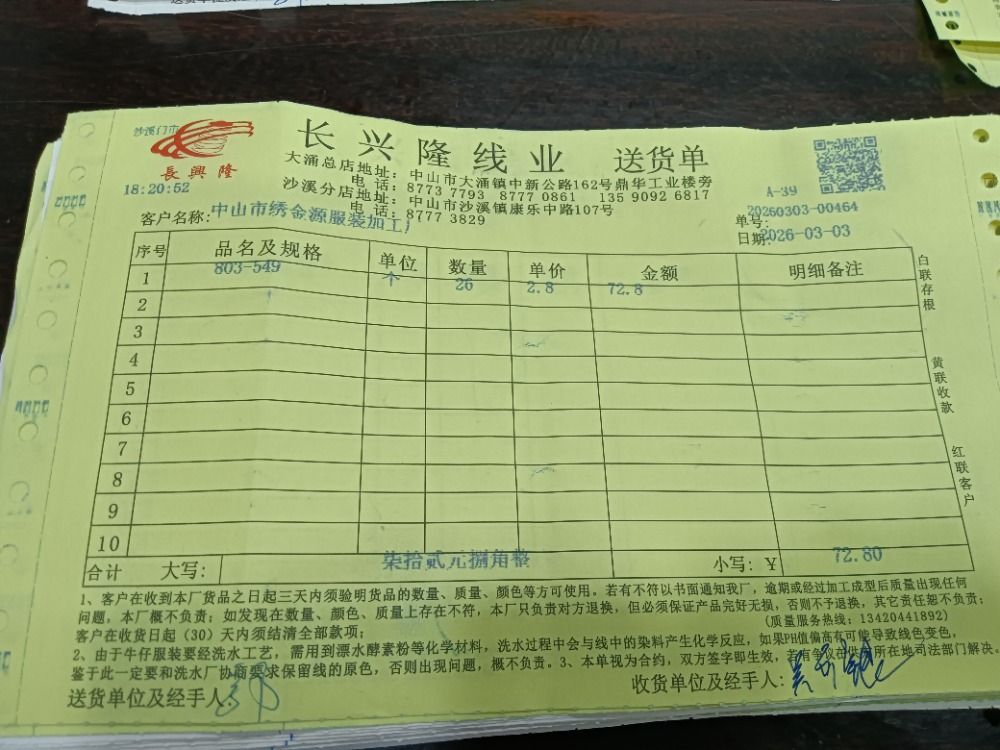 沙溪门市
長興隆
18:20:52
长兴隆线业 送货单
大涌总店地址: 中山市大涌镇中新公路162号鼎华工业楼旁
电话: 8773 7793 8777 0861 135 9092 6817
沙溪分店地址: 中山市沙溪镇康乐中路107号
电话: 8777 3829
A-39
客户名称: 中山市绣金源服装加工厂
单号: 20260303-00464
日期: 2026-03-03
序号 品名及规格 单位 数量 单价 金额 明细备注
1 803-549 个 26 2.8 72.8
2
3
4
5
6
7
8
9
10
合计 大写: 柒拾贰元捌角整 小写: ¥ 72.80
白联存根
黄联收款
红联客户
1、客户在收到本厂货品之日起三天内须验明货品的数量、质量、颜色等方可使用。若有不符以书面通知我厂，逾期或经过加工成型后质量出现任何
问题，本厂概不负责;如发现在数量、颜色、质量上存在不符，本厂只负责对方退换，但必须保证产品完好无损，否则不予退换，其它责任恕不负责;
客户在收货日起（30）天内须结清全部款项; (质量服务热线: 13420441892)
2、由于牛仔服装要经洗水工艺，需用到漂水酵素粉等化学材料，洗水过程中会与线中的染料产生化学反应，如果PH值偏高有可能导致线色变色，
鉴于此一定要和洗水厂协商要求保留线的原色，否则出现问题，概不负责。3、本单视为合约，双方签字即生效，若有争议在供方所在地司法部门解决。
送货单位及经手人:
收货单位及经手人: